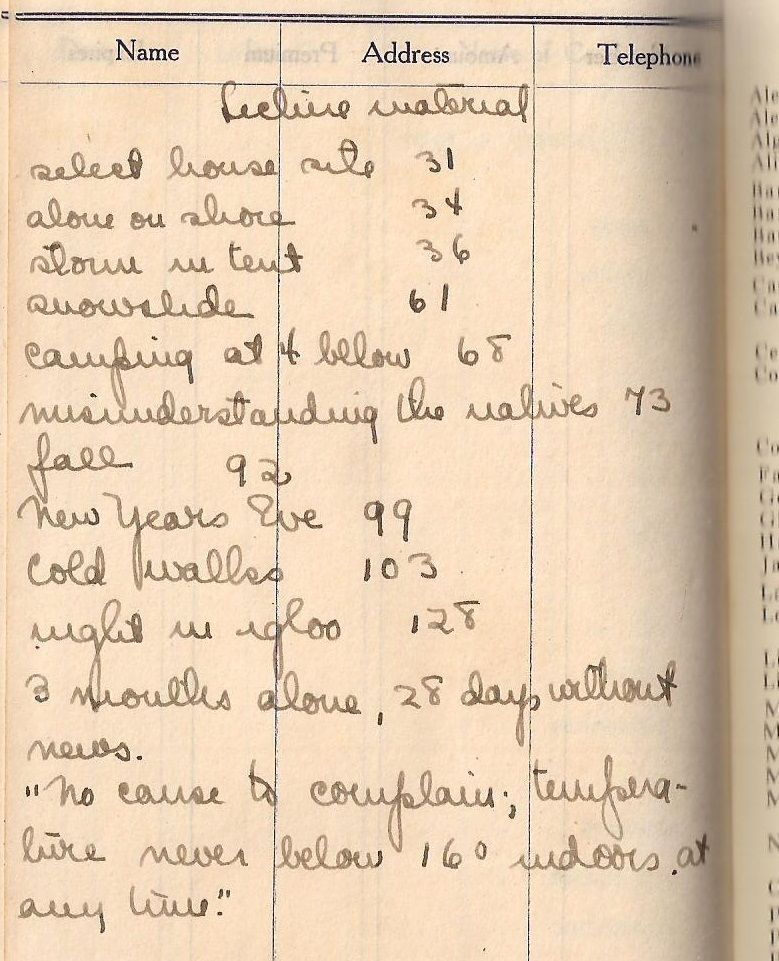 Name Address Telephone
Lecture material
select house site 31
alone on shore 34
storm in tent 36
snowslide 61
camping at 4 below 68
misunderstanding the natives 73
fall 92
New Years Eve 99
cold walks 103
night in igloo 128
3 months alone, 28 days without
news.
"No cause to complain; tempera-
ture never below 16° indoors at
any time."